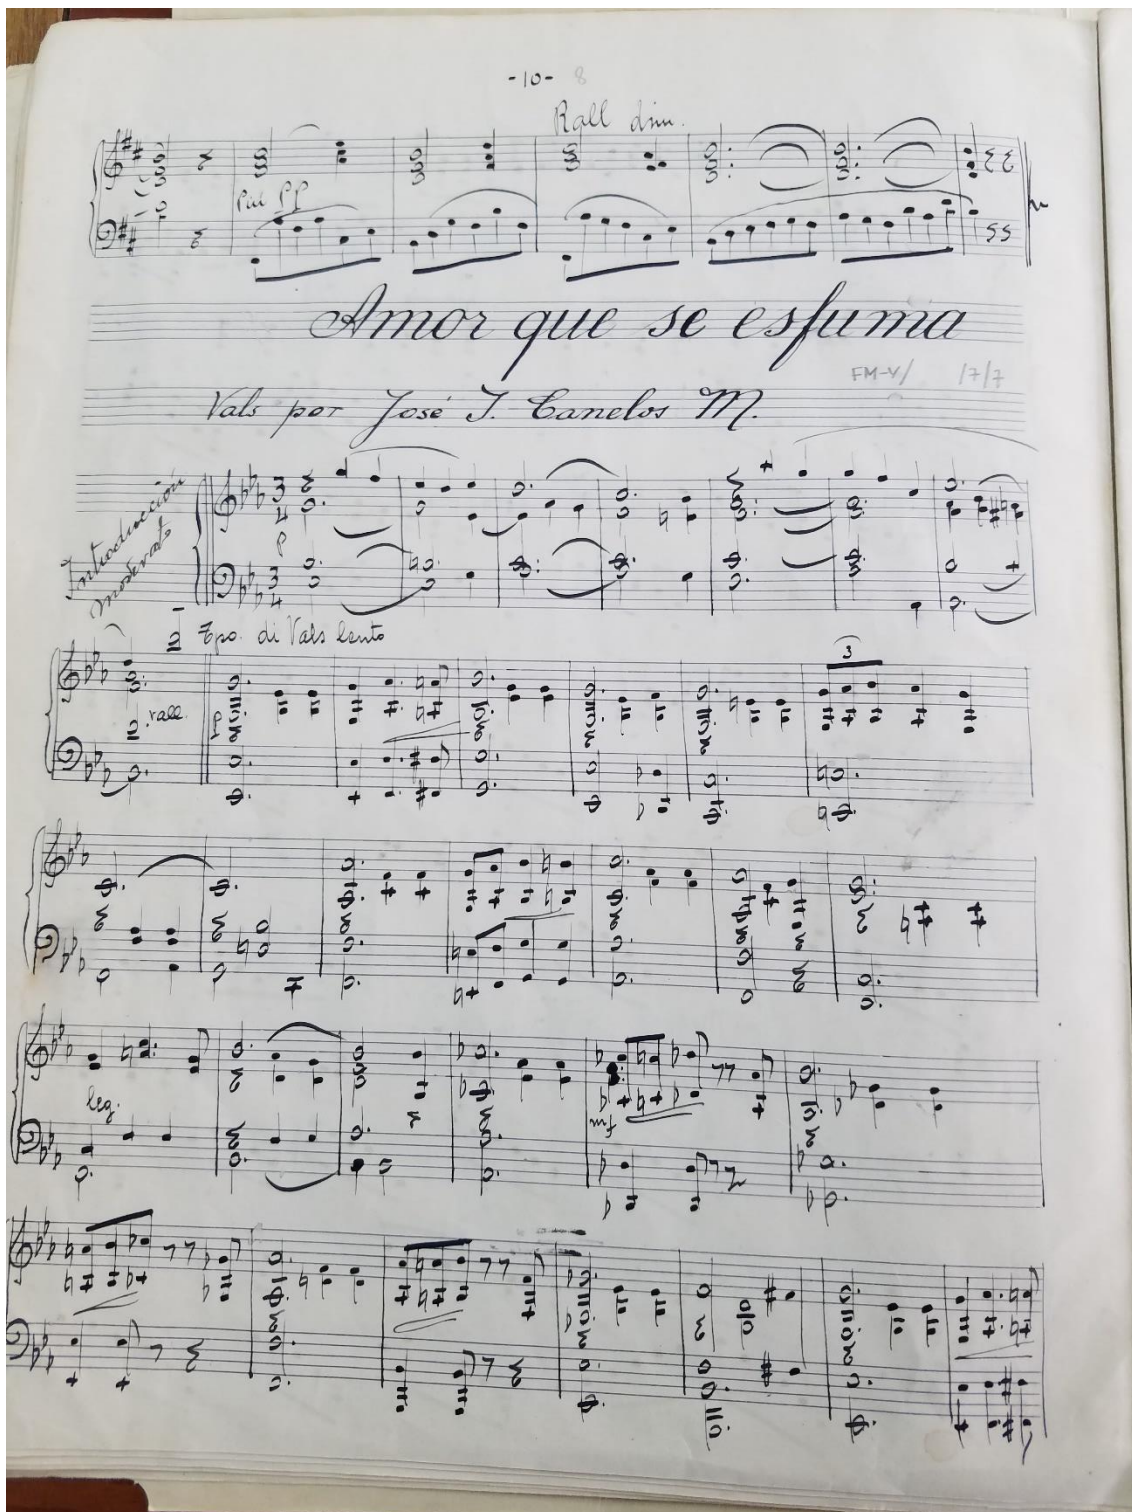 -10- 8
Rall dim.
PP
Amor que se esfuma
FM-V/ 17/7
Vals por José I. Canelos M.
Introducción
Moderato
3
4
P
3
4
Tpo. di Vals lento
rall.
P
3
leg.
mf